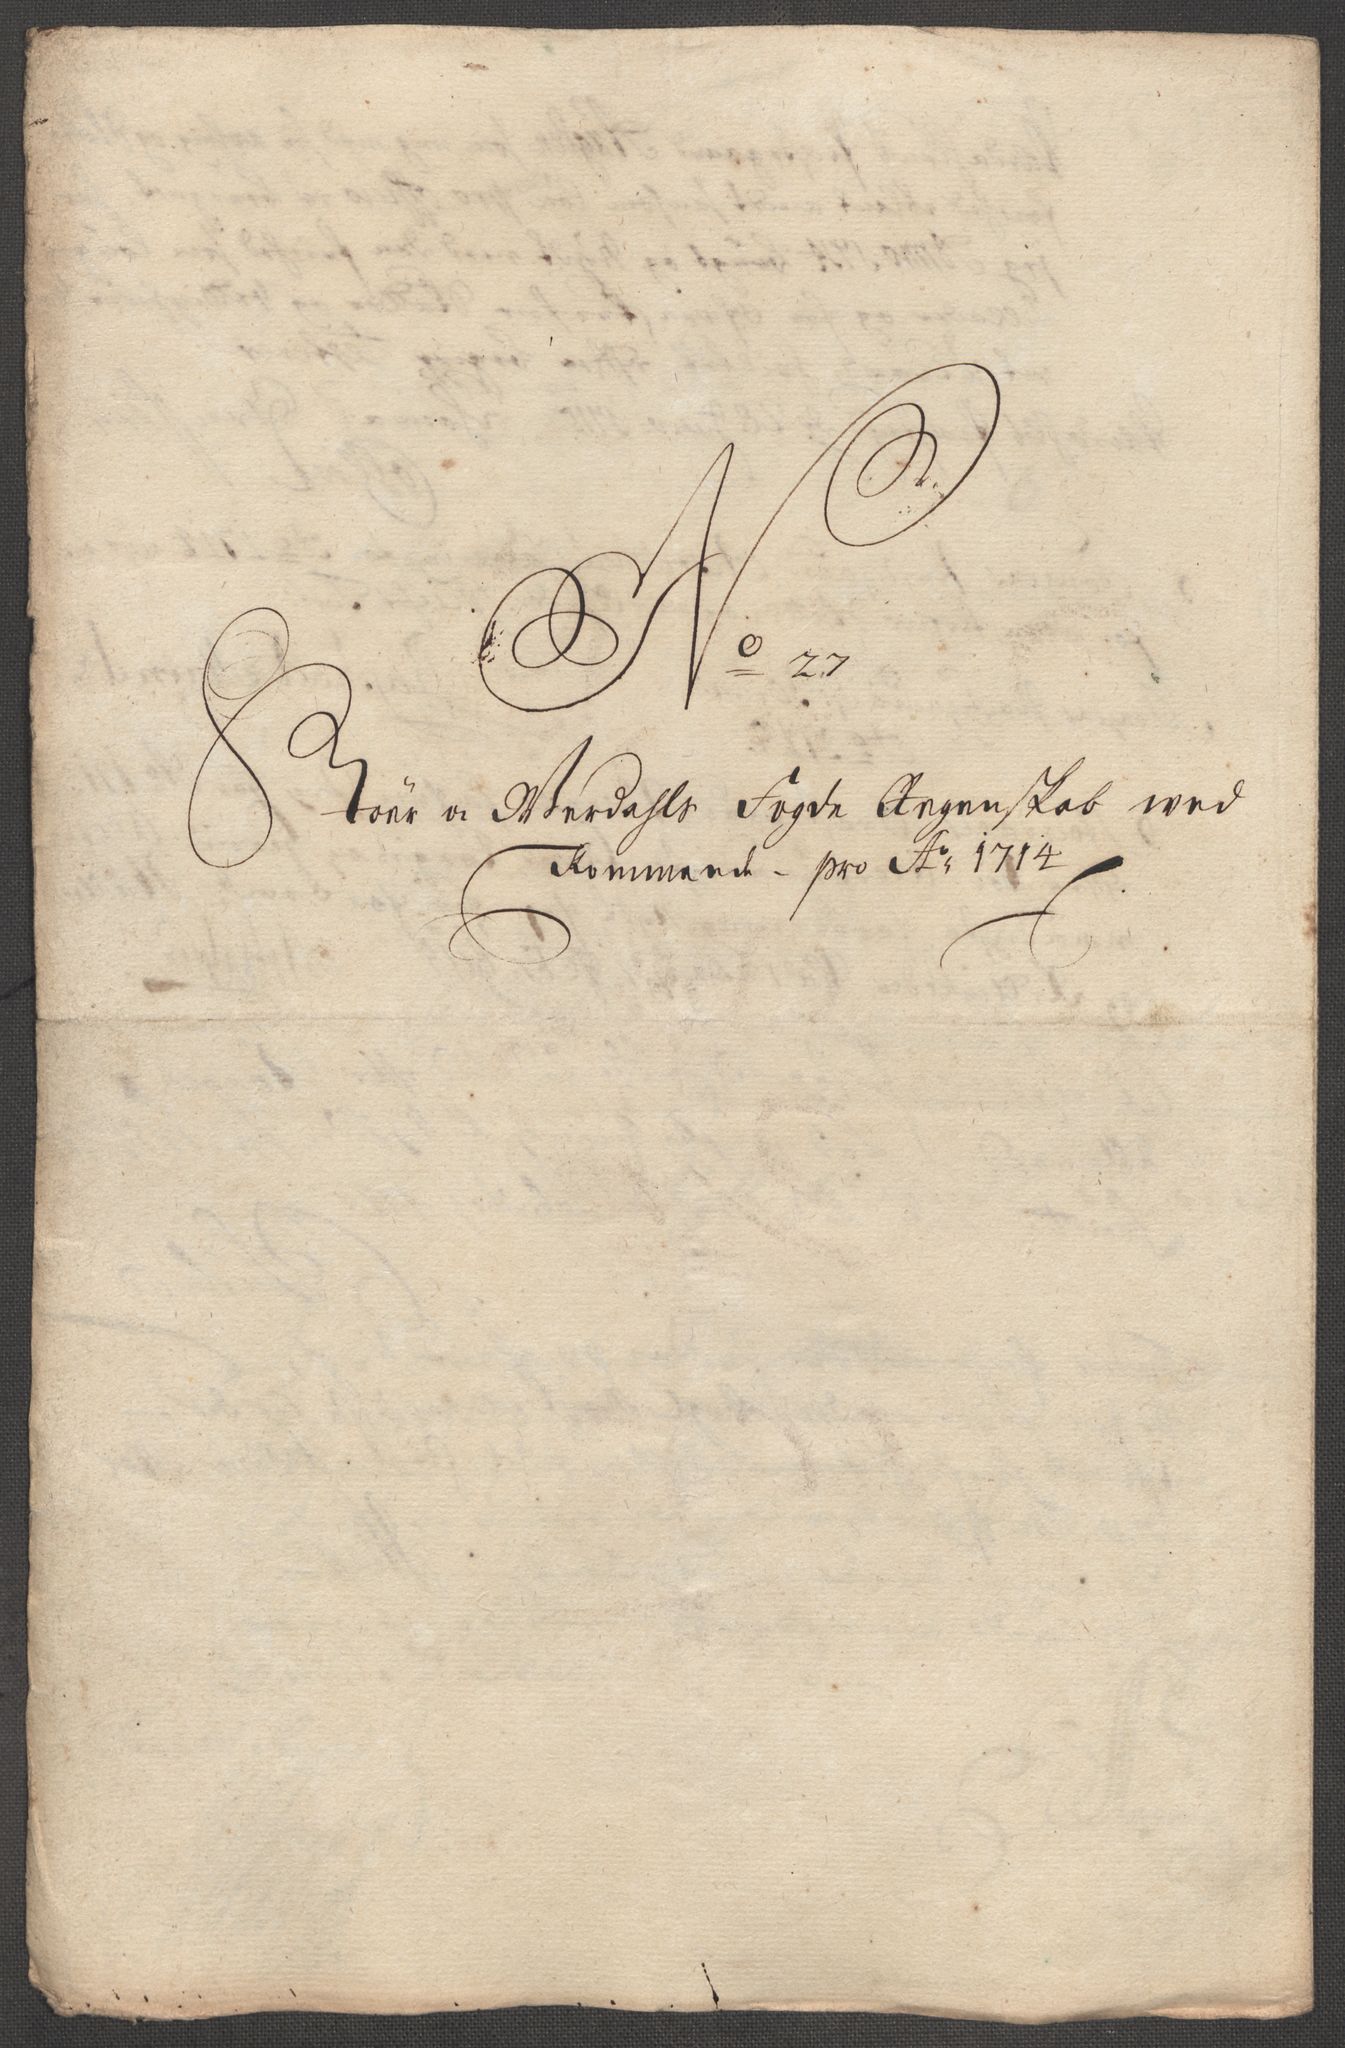 No 27
Stör oc Werdahls Fogde Regenskab wed
Kommende - pro Ao 1714